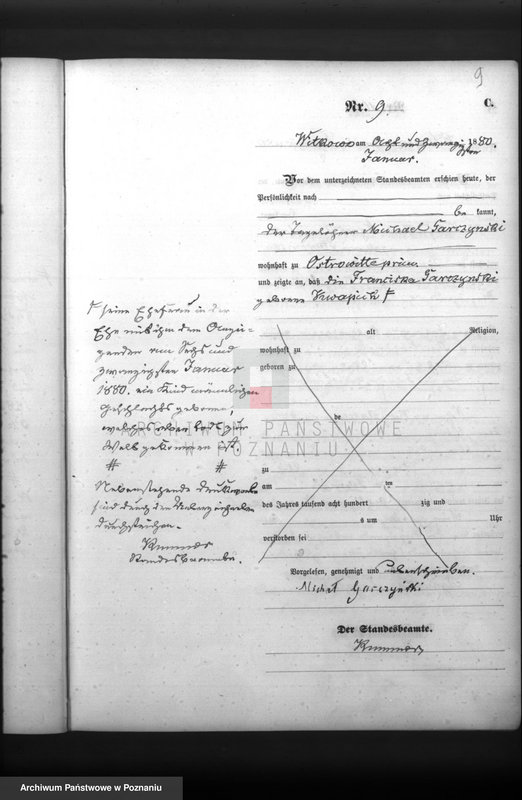 9
Nr. 9.
C.
Witkowo am Acht und zwanzigsten
Januar. 1880.
Vor dem unterzeichneten Standesbeamten erschien heute, der
Persönlichkeit nach
be kannt,
der Tagelöhner Michael Garczynski
wohnhaft zu Ostrowitte prim.
und zeigte an, daß die Franciska Garczynski
geborene Kwapich
seine Ehefrau in der
Ehe mit ihm dem Anzei-
genden am Sechs und
zwanzigsten Januar
1880. ein Kind männlichen
Geschlechts geboren,
welches aber todt zur
Welt gekommen ist
# #
Nebenstehende Druckworte
sind durch den Unterzeichneten
durchstrichen.
Standesbeamte.
alt Religion,
wohnhaft zu
geboren zu
de
ARCHIWUM PAŃSTWOWE
W POZNANIU
zu
am ten
des Jahres tausend acht hundert zig und
s um Uhr
verstorben sei
Vorgelesen, genehmigt und unterschrieben.
Michał Garczyński
Der Standesbeamte.
Archiwum Państwowe w Poznaniu